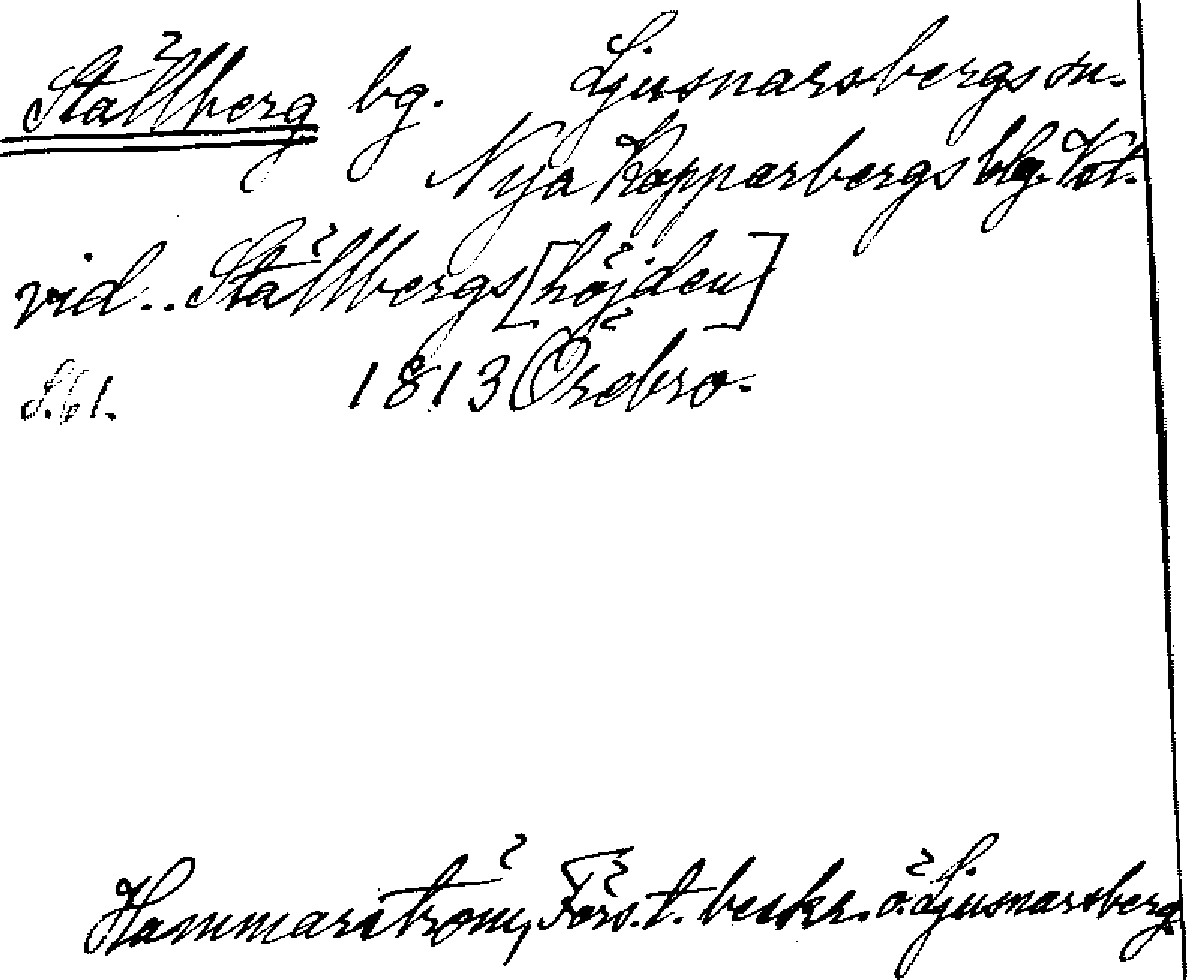 Ställberg bg. Ljusnarsbergs sn.
Nya Kopparbergs blg. Vst.
vid.. Ställbergs [höjden]
S. 61. 1813 Örebro.
Hammarström, Förs. t. beskr. ö. Ljusnarsberg